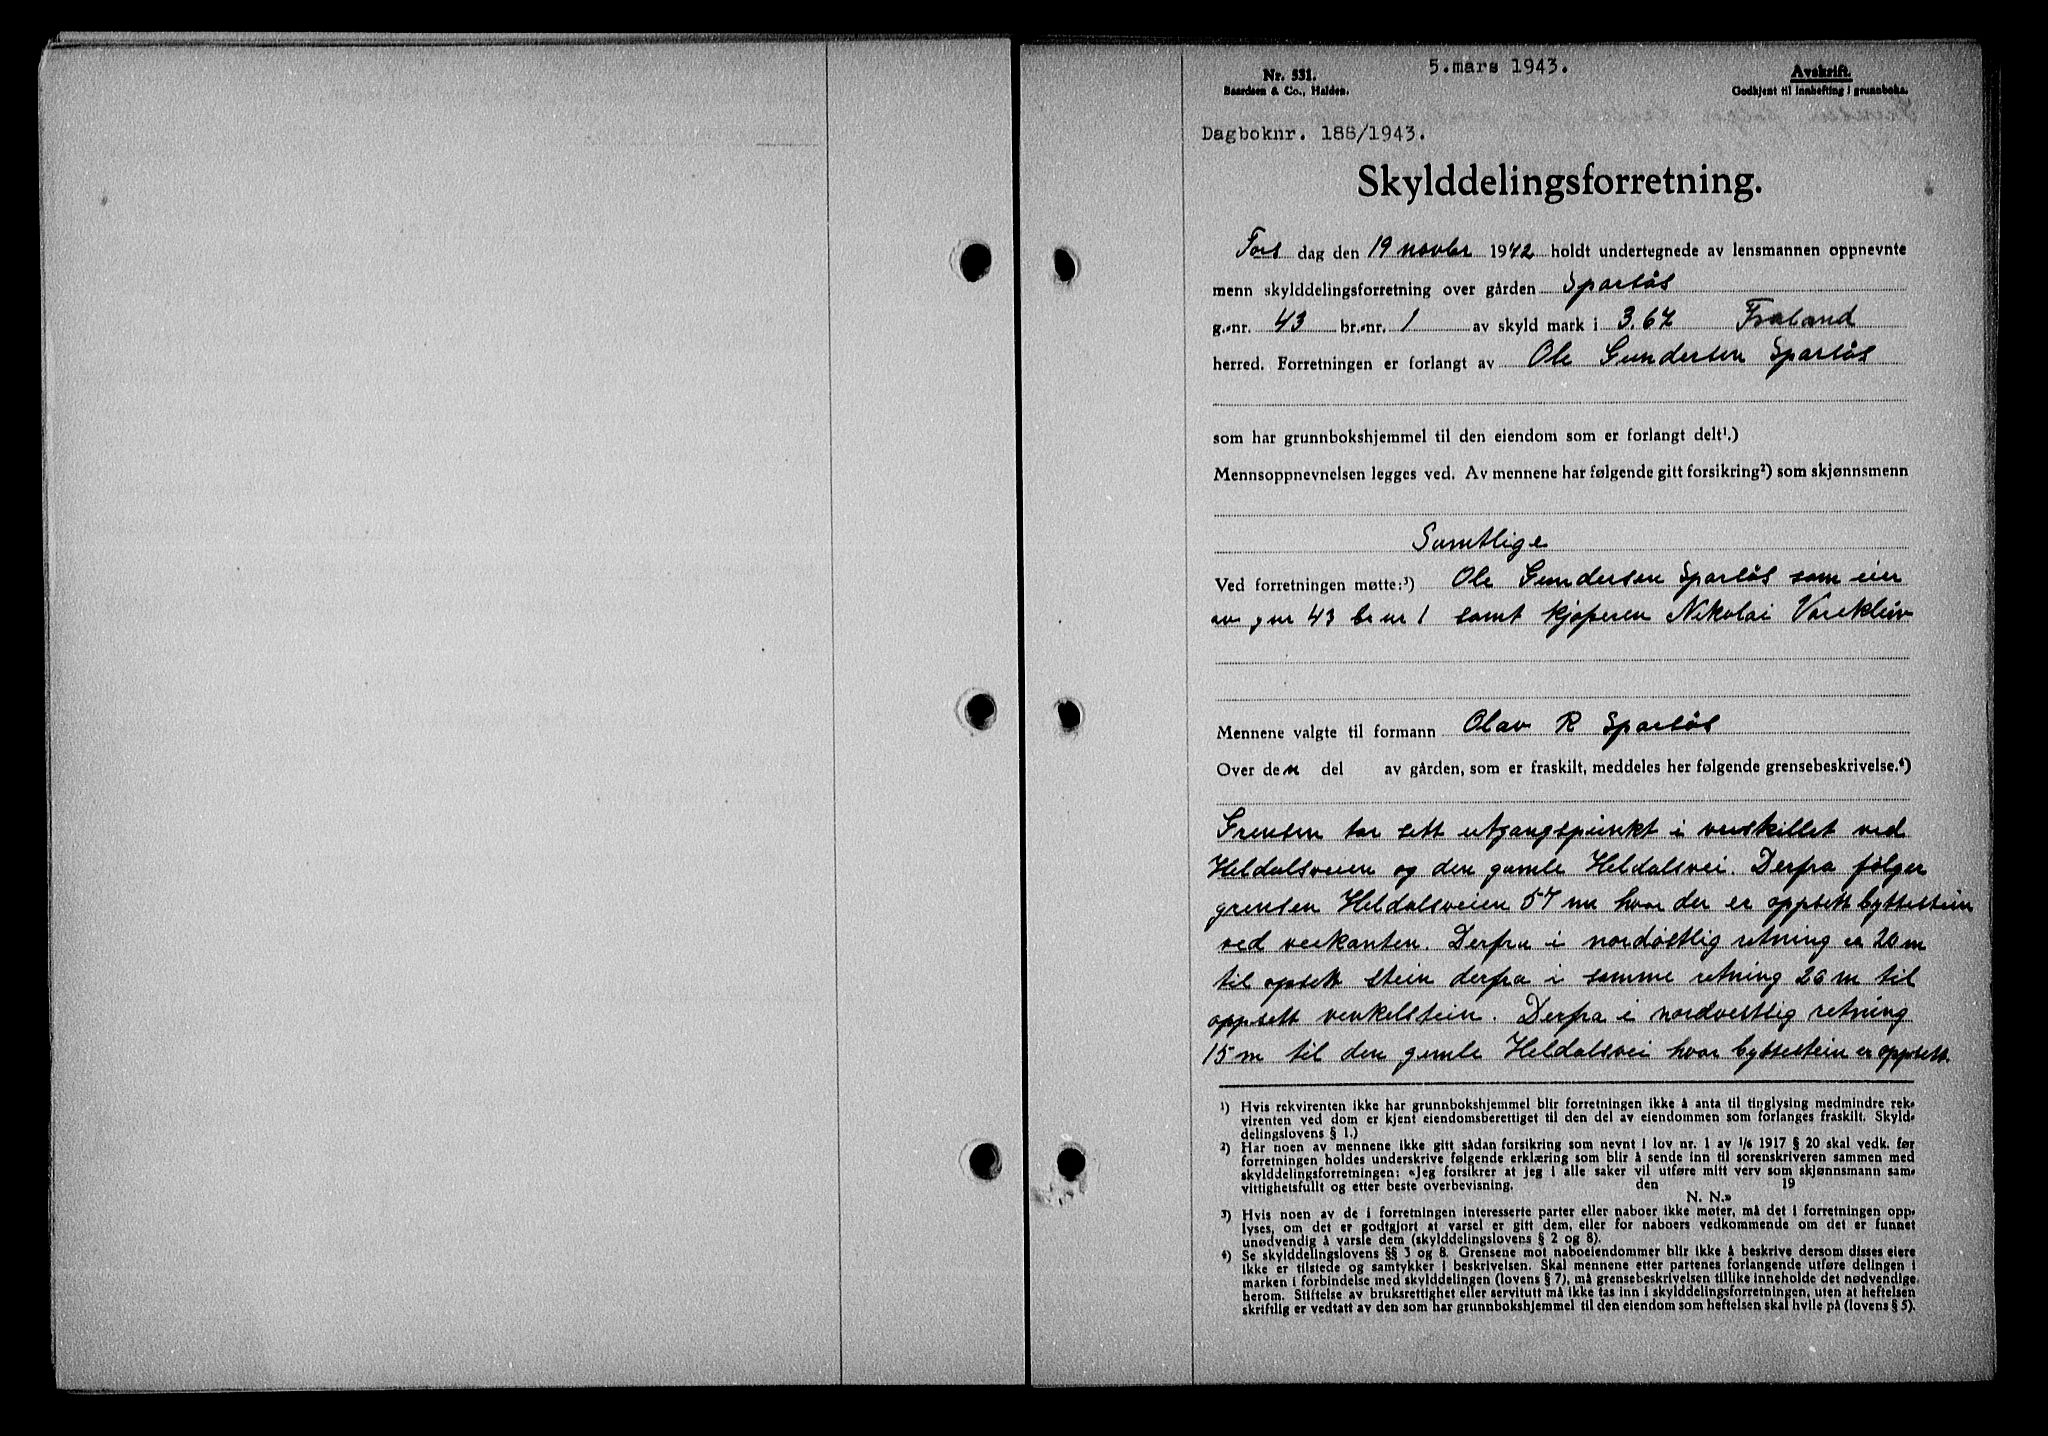 5.mars 1943.
Nr. 531.
Baardsen & Co., Halden.
Avskrift.
Godkjent til innhefting i grunnboka.
Dagboknr. 188/1943.
Skylddelingsforretning.
Tors dag den 19 novbr 1942 holdt undertegnede av lensmannen oppnevnte
menn skylddelingsforretning over gården Sparsås
g.-nr. 43 br.-nr. 1 av skyld mark i 3.67 Froland
herred. Forretningen er forlangt av Ole Gundersen Sparsås
som har grunnbokshjemmel til den eiendom som er forlangt delt¹.)
Mennsoppnevnelsen legges ved. Av mennene har følgende gitt forsikring²) som skjønnsmenn
Samtlige
Ved forretningen møtte:³) Ole Gundersen Sparsås som eier
av g nr 43 br nr 1 samt kjøperen Nikolai Vareklûv
Mennene valgte til formann Olav R Sparsås
Over den del av gården, som er fraskilt, meddeles her følgende grensebeskrivelse.⁴)
Grensen tar sett utgangspunkt i veiskillet ved
Heldalsveien og den gamle Heldalsvei. Derfra følger
grensen Heldalsveien 57 m hvor der er oppsett byttestein
ved veikanten. Derfra i nordøstlig retning er 20 m
til oppsett stein derfra i samme retning 26 m til
oppsett venkelstein. Derfra i nordvestlig retning
15 m til den gamle Heldalsvei hvor byttestein er oppsett
¹) Hvis rekvirenten ikke har grunnbokshjemmel blir forretningen ikke å anta til tinglysing medmindre rek-
virenten ved dom er kjent eiendomsberettiget til den del av eiendommen som forlanges fraskilt. Skyld-
delingslovens § 1.)
²) Har noen av mennene ikke gitt sådan forsikring som nevnt i lov nr. 1 av 1/6 1917 § 20 skal vedk. før
forretningen holdes underskrive følgende erklæring som blir å sende inn til sorenskriveren sammen med
skylddelingsforretningen: «Jeg forsikrer at jeg i alle saker vil utføre mitt verv som skjønnsmann sam-
vittighetsfullt og etter beste overbevisning. den 19
N. N.»
³) Hvis noen av de i forretningen interesserte parter eller naboer ikke møter, må det i forretningen opp-
lyses, om det er godtgjort at varsel er gitt dem, eller for naboers vedkommende om det er funnet
unødvendig å varsle dem (skylddelingslovens § 2 og 8).
⁴) Se skylddelingslovens §§ 3 og 8. Grensene mot naboeiendommer blir ikke å beskrive dersom disses eiere
ikke er tilstede og samtykker i beskrivelsen. Skal mennene etter partenes forlangende utføre delingen i
marken i forbindelse med skylddelingen (lovens § 7), må grensebeskrivelsen tillike inneholde det nødvendige
herom. Stiftelse av bruksrettighet eller servitutt må ikke tas inn i skylddelingsforretningen, uten at heftelsen
skriftlig er vedtatt av den som har grunnbokshjemmel til den eiendom som heftelsen skal hvile på (lovens § 5).